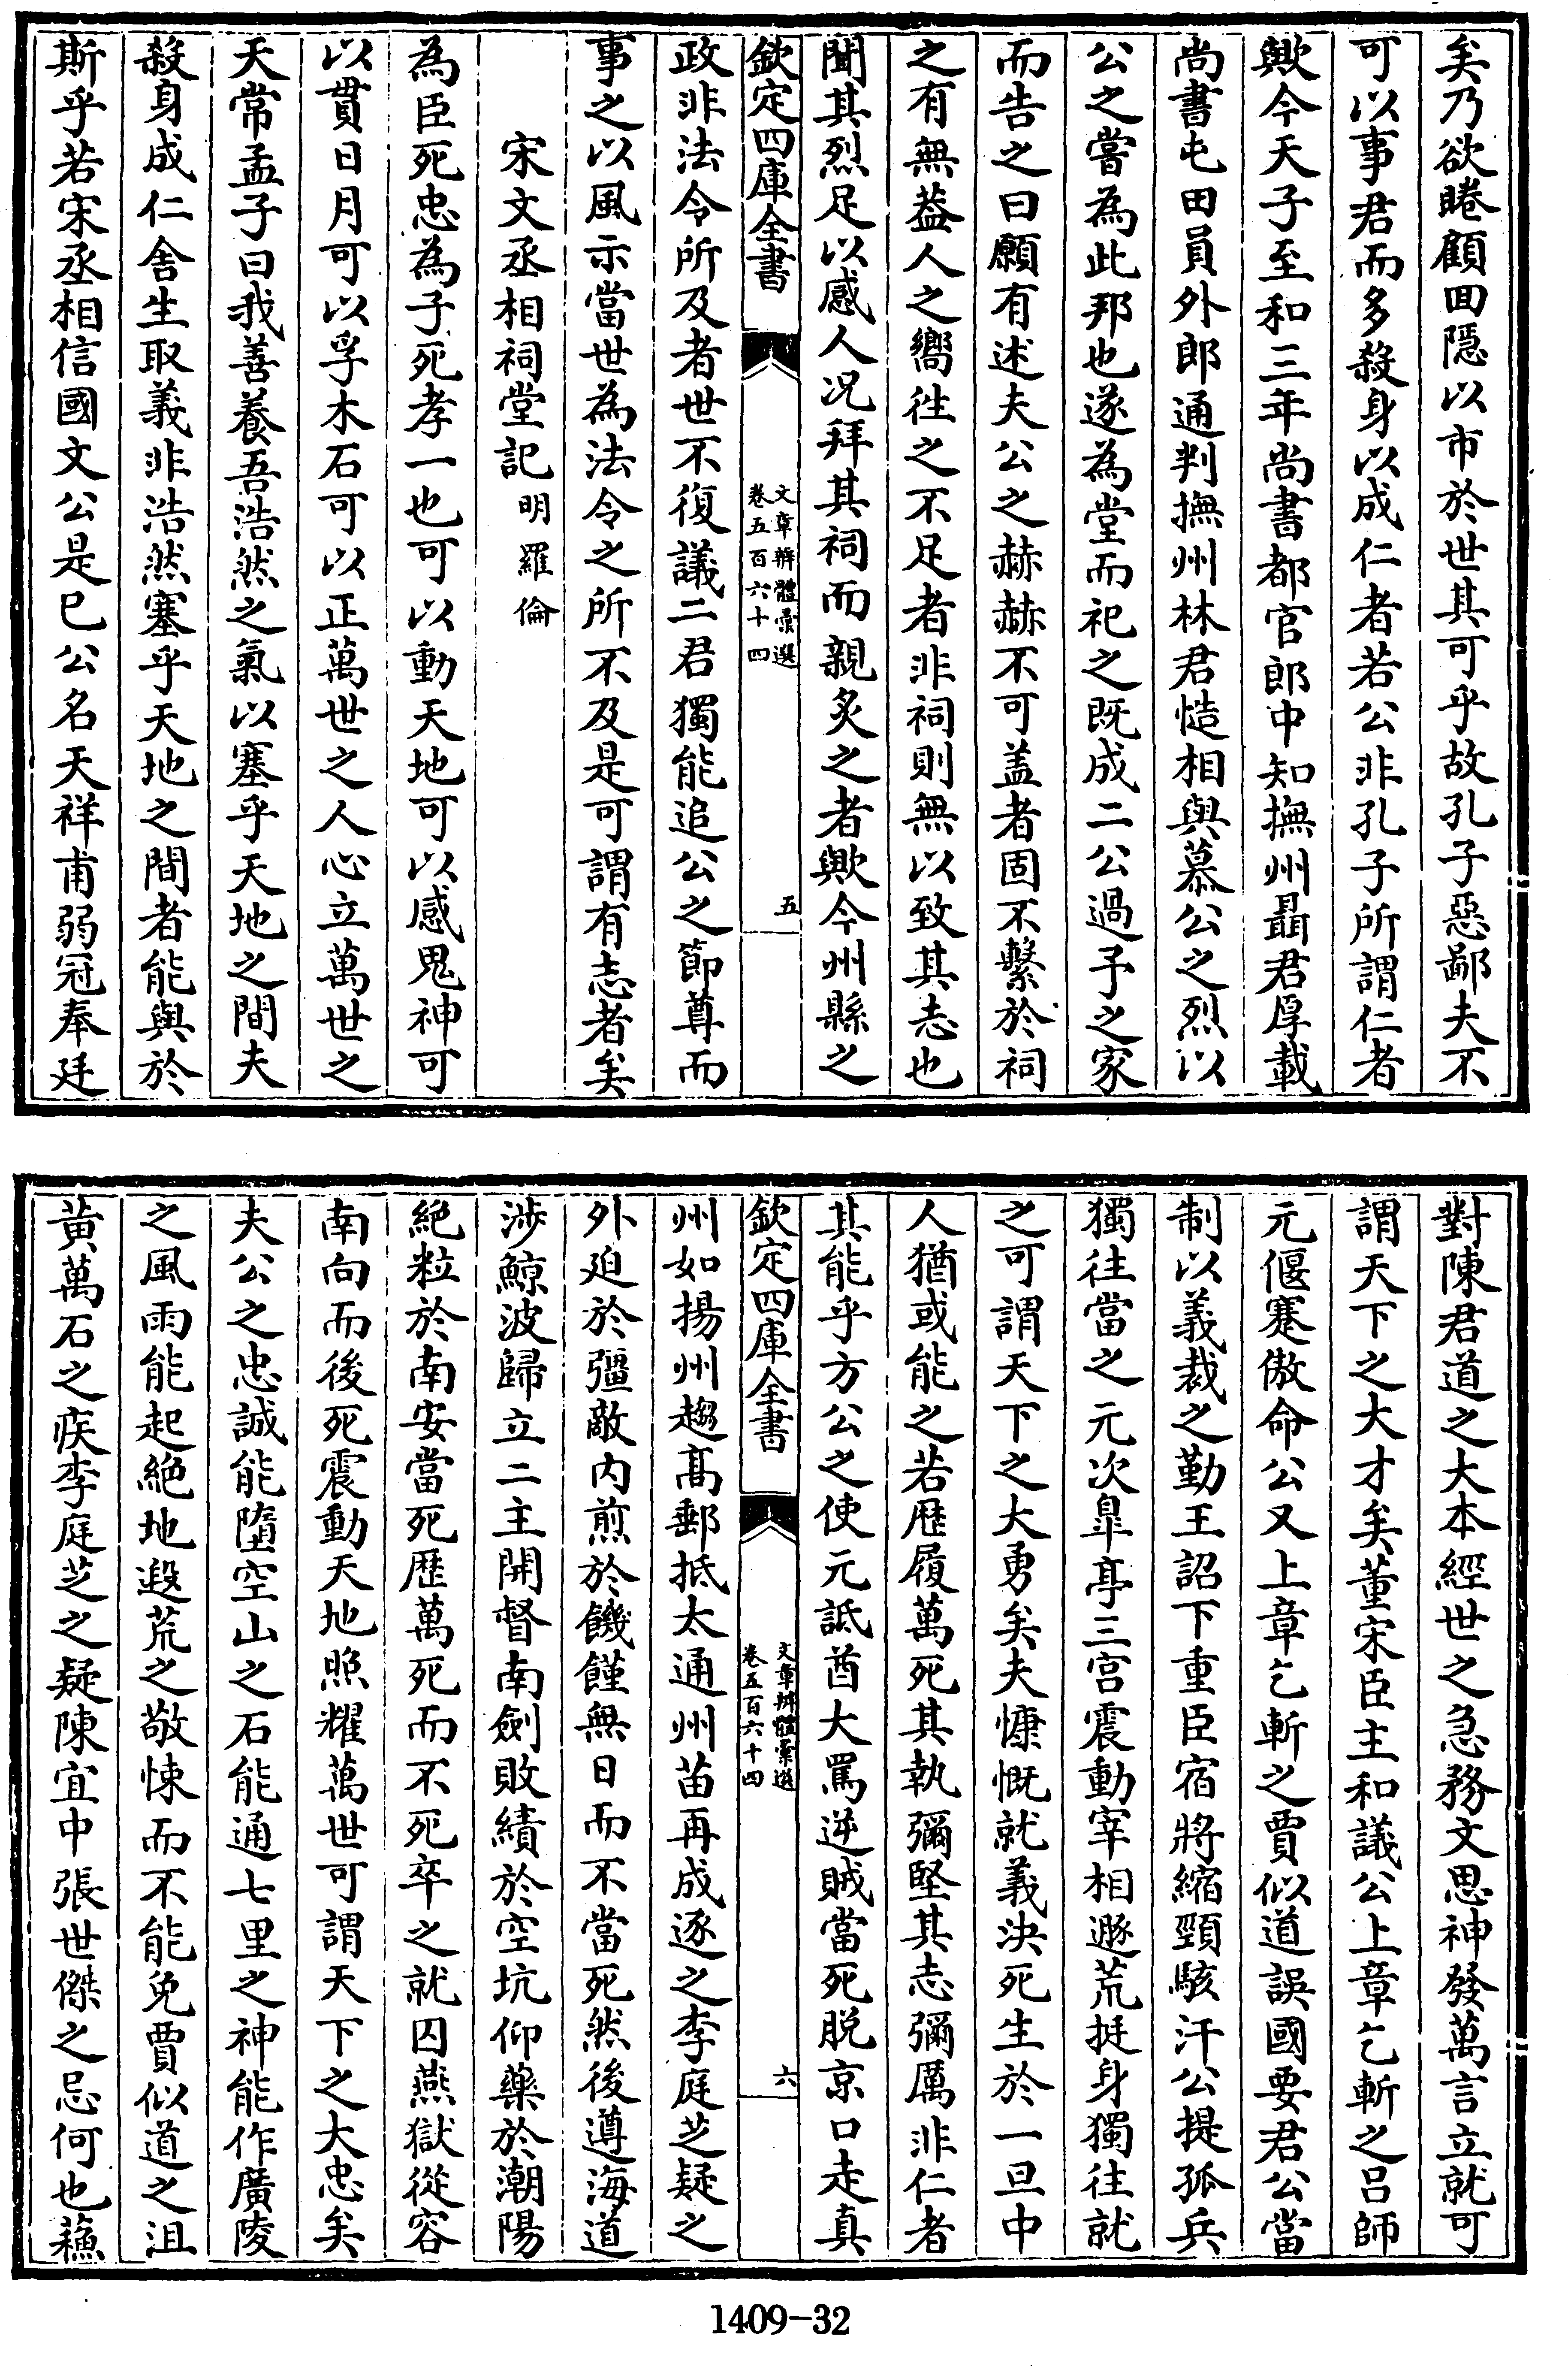 矣乃欲睠顧回隱以市於世其可乎故孔子惡鄙夫不
可以事君而多殺身以成仁者若公非孔子所謂仁者
歟今天子至和三年尚書都官郎中知撫州聶君厚載
尚書屯田員外郎通判撫州林君慥相與慕公之烈以
公之嘗為此邦也遂為堂而祀之既成二公過予之家
而告之曰願有述夫公之赫赫不可盖者固不繫於祠
之有無葢人之嚮往之不足者非祠則無以致其志也
聞其烈足以感人況拜其祠而親炙之者歟今州縣之
欽定四庫全書
文章辨體彙選
卷五百六十四
五
政非法令所及者世不復議二君獨能追公之節尊而
事之以風示當世為法令之所不及是可謂有志者矣
宋文丞相祠堂記 明羅倫
為臣死忠為子死孝一也可以動天地可以感鬼神可
以貫日月可以孚木石可以正萬世之人心立萬世之
天常孟子曰我善養吾浩然之氣以塞乎天地之間夫
殺身成仁舍生取義非浩然塞乎天地之間者能與於
斯乎若宋丞相信國文公是已公名天祥甫弱冠奉廷
對陳君道之大本經世之急務文思神發萬言立就可
謂天下之大才矣董宋臣主和議公上章乞斬之呂師
元偃蹇傲命公又上章乞斬之賈似道誤國要君公當
制以義裁之勤王詔下重臣宿將縮頸駭汗公提孤兵
獨往當之元次臯亭三宫震動宰相遯荒挺身獨往就
之可謂天下之大勇矣夫慷慨就義決死生於一旦中
人猶或能之若歴履萬死其執彌堅其志彌厲非仁者
其能乎方公之使元詆酋大罵逆賊當死脱京口走真
欽定四庫全書
文章辨體彙選
卷五百六十四
六
州如揚州趨髙郵抵太通州苗再成逐之李庭芝疑之
外廹於彊敵内煎於饑饉無日而不當死然後遵海道
涉鯨波歸立二主開督南劍敗績於空坑仰藥於潮陽
絶粒於南安當死歴萬死而不死卒之就囚燕獄從容
南向而後死震動天地照耀萬世可謂天下之大忠矣
夫公之忠誠能墮空山之石能通七里之神能作廣陵
之風雨能起絶地遐荒之敬悚而不能免賈似道之沮
黄萬石之疾李庭芝之疑陳宜中張世傑之忌何也蘓
1409-32